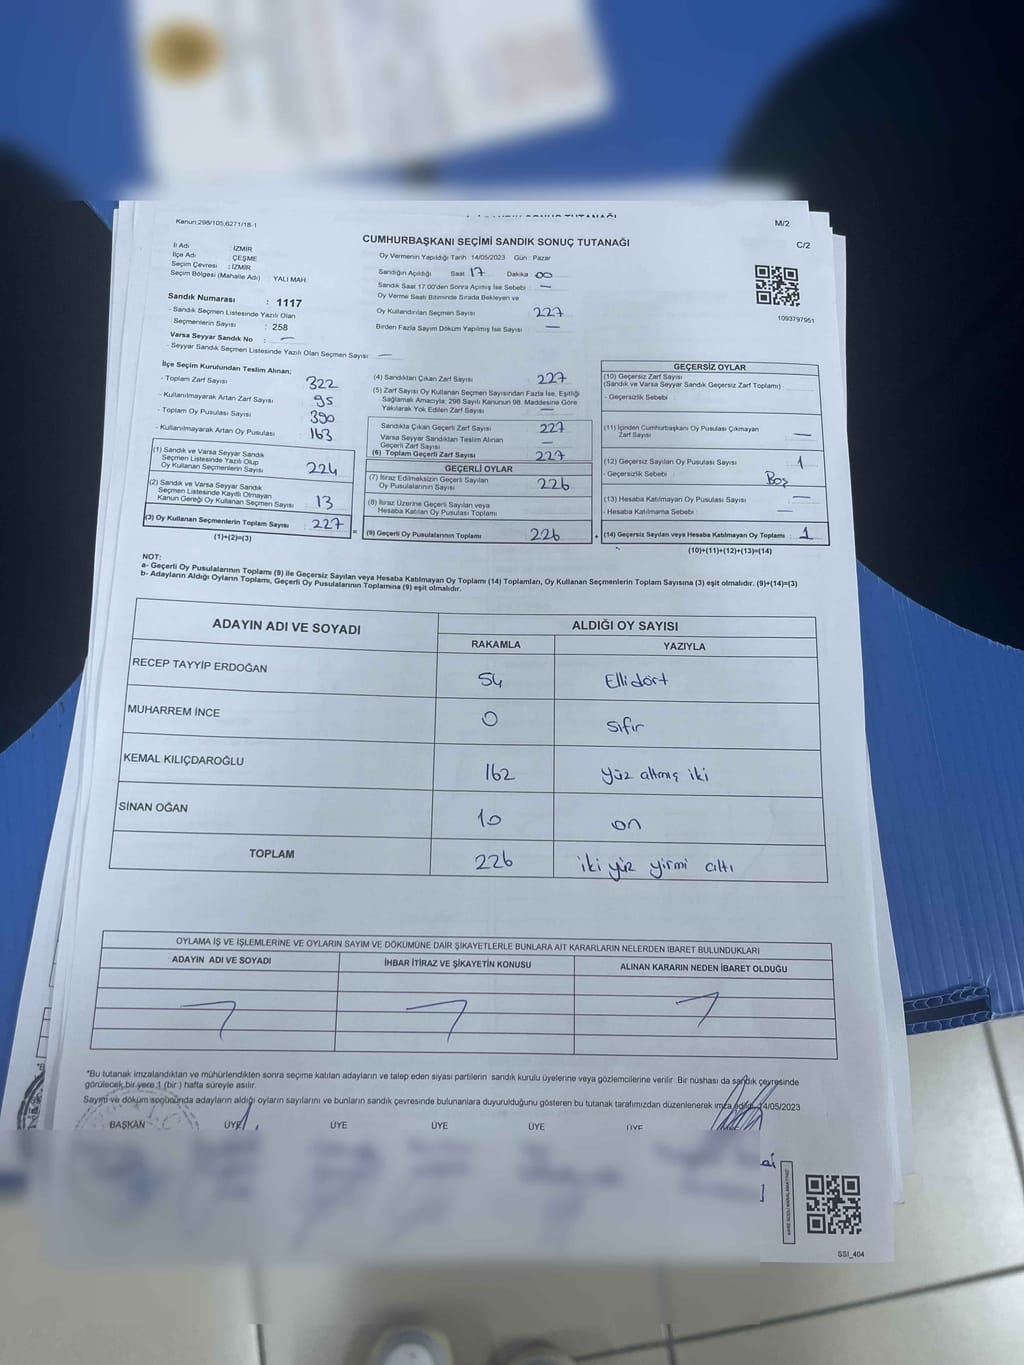 Kanun:298/105,6271/18-1
M/2
C/2
CUMHURBAŞKANI SEÇİMİ SANDIK SONUÇ TUTANAĞI
Oy Vermenin Yapıldığı Tarih : 14/05/2023 Gün : Pazar
İl Adı : İZMİR
İlçe Adı : ÇEŞME
Seçim Çevresi : İZMİR
Seçim Bölgesi (Mahalle Adı) : YALI MAH.
Sandık Numarası : 1117
- Sandık Seçmen Listesinde Yazılı Olan
Seçmenlerin Sayısı : 258
Varsa Seyyar Sandık No : —
- Seyyar Sandık Seçmen Listesinde Yazılı Olan Seçmen Sayısı —
Sandığın Açıldığı Saat 17 Dakika 00
Sandık Saat 17.00'den Sonra Açılmış İse Sebebi —
Oy Verme Saati Bitiminde Sırada Bekleyen ve
Oy Kullandırılan Seçmen Sayısı 227
Birden Fazla Sayım Döküm Yapılmış İse Sayısı —
1093797951
İlçe Seçim Kurulundan Teslim Alınan;
- Toplam Zarf Sayısı 322
- Kullanılmayarak Artan Zarf Sayısı 95
- Toplam Oy Pusulası Sayısı 390
- Kullanılmayarak Artan Oy Pusulası 163
(1) Sandık ve Varsa Seyyar Sandık
Seçmen Listesinde Yazılı Olup
Oy Kullanan Seçmenlerin Sayısı
(2) Sandık ve Varsa Seyyar Sandık
Seçmen Listesinde Kayıtlı Olmayan
Kanun Gereği Oy Kullanan Seçmen Sayısı 13
(3) Oy Kullanan Seçmenlerin Toplam Sayısı 227
(1)+(2)=(3)
(4) Sandıktan Çıkan Zarf Sayısı 227
(5) Zarf Sayısı Oy Kullanan Seçmen Sayısından Fazla İse, Eşitliği
Sağlamak Amacıyla; 298 Sayılı Kanunun 98. Maddesine Göre
Yakılarak Yok Edilen Zarf Sayısı —
Sandıkta Çıkan Geçerli Zarf Sayısı 227
Varsa Seyyar Sandıktan Teslim Alınan
Geçerli Zarf Sayısı —
(6) Toplam Geçerli Zarf Sayısı 227
GEÇERLİ OYLAR
(7) İtiraz Edilmeksizin Geçerli Sayılan
Oy Pusulalarının Sayısı 226
(8) İtiraz Üzerine Geçerli Sayılan veya
Hesaba Katılan Oy Pusulası Toplamı
(9) Geçerli Oy Pusulalarının Toplamı 226
GEÇERSİZ OYLAR
(10) Geçersiz Zarf Sayısı
(Sandık ve Varsa Seyyar Sandık Geçersiz Zarf Toplamı)
- Geçersizlik Sebebi
(11) İçinden Cumhurbaşkanı Oy Pusulası Çıkmayan
Zarf Sayısı —
(12) Geçersiz Sayılan Oy Pusulası Sayısı 1
- Geçersizlik Sebebi : Boş
(13) Hesaba Katılmayan Oy Pusulası Sayısı —
- Hesaba Katılmama Sebebi : —
(14) Geçersiz Sayılan veya Hesaba Katılmayan Oy Toplamı : 1
(10)+(11)+(12)+(13)=(14)
NOT:
a- Geçerli Oy Pusulalarının Toplamı (9) ile Geçersiz Sayılan veya Hesaba Katılmayan Oy Toplamı (14) Toplamları, Oy Kullanan Seçmenlerin Toplam Sayısına (3) eşit olmalıdır. (9)+(14)=(3)
b- Adayların Aldığı Oyların Toplamı, Geçerli Oy Pusulalarının Toplamına (9) eşit olmalıdır.
ADAYIN ADI VE SOYADI ALDIĞI OY SAYISI
RAKAMLA YAZIYLA
RECEP TAYYİP ERDOĞAN 54 Ellidört
MUHARREM İNCE 0 sıfır
KEMAL KILIÇDAROĞLU 162 yüz altmış iki
SİNAN OĞAN 10 on
TOPLAM 226 iki yüz yirmi altı
OYLAMA İŞ VE İŞLEMLERİNE VE OYLARIN SAYIM VE DÖKÜMÜNE DAİR ŞİKAYETLERLE BUNLARA AİT KARARLARIN NELERDEN İBARET BULUNDUKLARI
ADAYIN ADI VE SOYADI İHBAR İTİRAZ VE ŞİKAYETİN KONUSU ALINAN KARARIN NEDEN İBARET OLDUĞU
*Bu tutanak imzalandıktan ve mühürlendikten sonra seçime katılan adayların ve talep eden siyasi partilerin sandık kurulu üyelerine veya gözlemcilerine verilir. Bir nüshası da sandık çevresinde
görülecek bir yere 1 (bir) hafta süreyle asılır.
Sayım ve döküm sonucunda adayların aldığı oyların sayılarını ve bunların sandık çevresinde bulunanlara duyurulduğunu gösteren bu tutanak tarafımızdan düzenlenerek imza edildi. 14/05/2023
BAŞKAN ÜYE ÜYE ÜYE ÜYE ÜYE
SSI_404